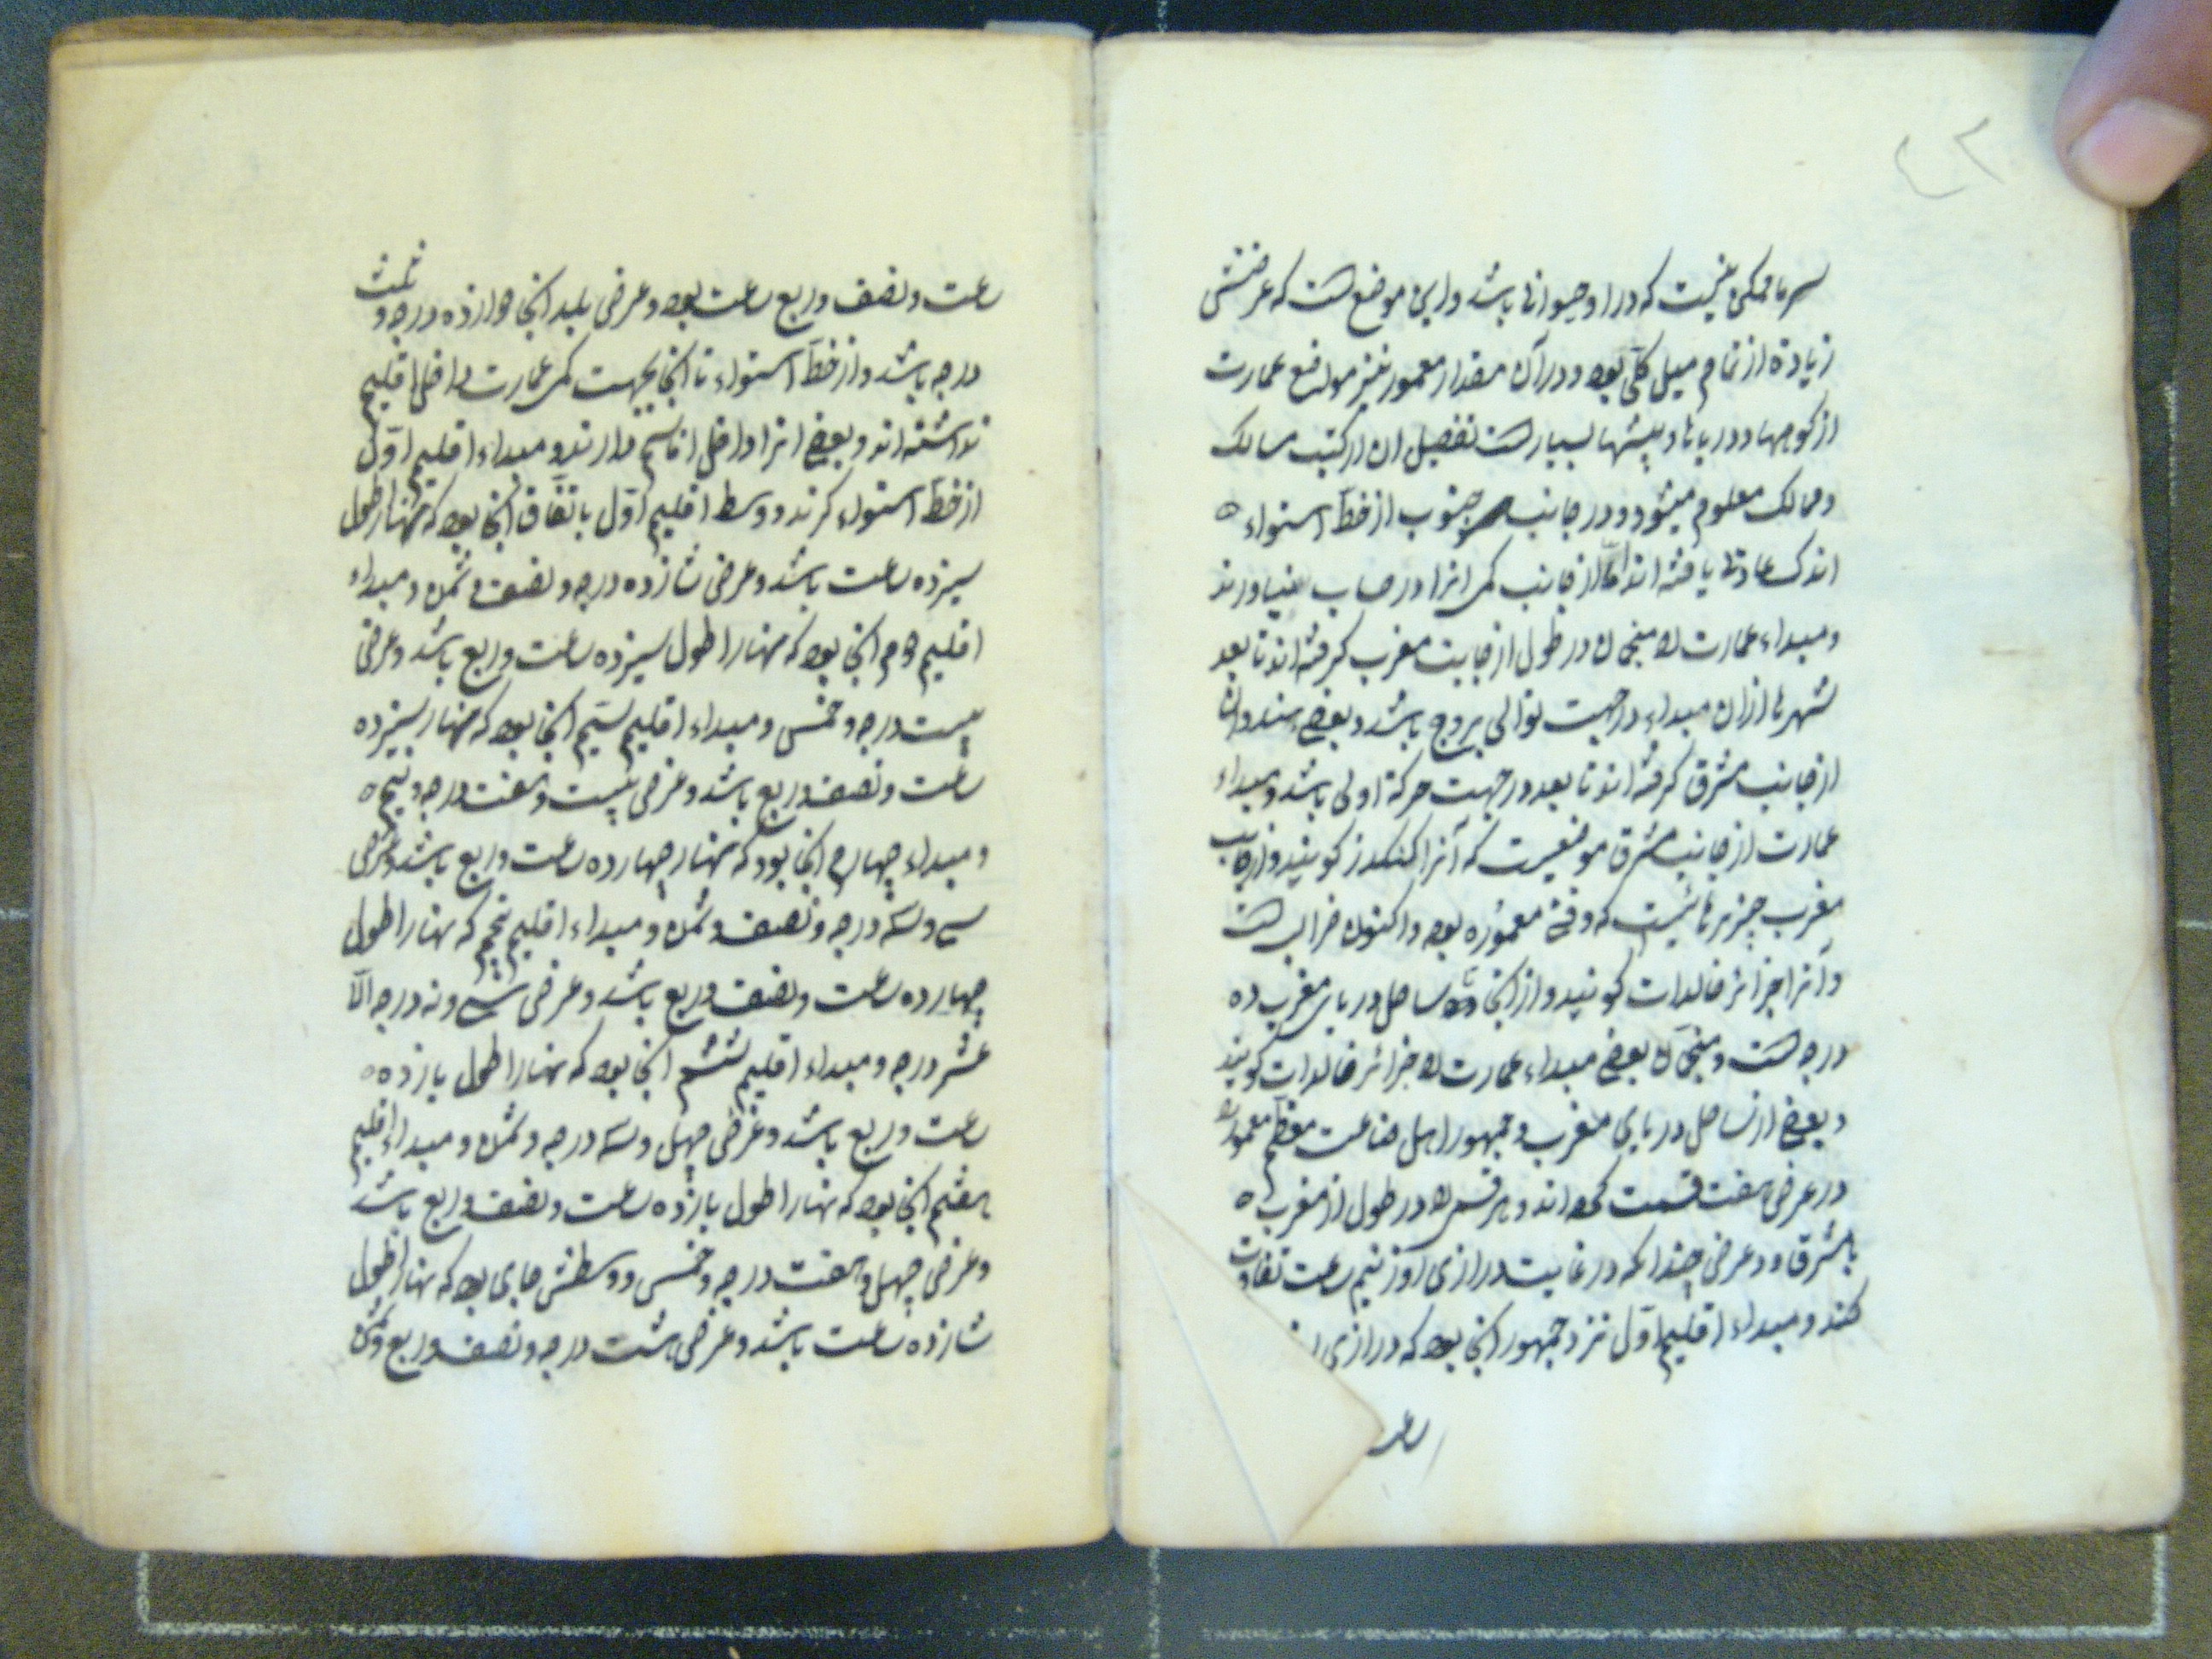 ٤٢
سرما ممکن نیست که در او حیوانی باشد و این موضعست که عرضش
زیاده از تمام میل کلی بود و در آن مقدار معمور نیز مواضع عمارت
از کوهها و دریاها و بیشها بسیارست تفصیل ان از کتب مسالک
و ممالک معلوم میشود و در جانب جنوب از خط استواء
اندک عمارتی یافته اند اما از جانب کمی انرا در حساب نیاورند
و مبداء عمارت را منجمان در طول از جانب مغرب گرفته اند تا بعد
شهرها از ان مبداء در جهت توالی بروج باشد و بعضی هندوان
از جانب مشرق گرفته اند تا بعد در جهت حرکة اولی باشد و مبداء
عمارت از جانب مشرق موضعیست که آنرا کنکدز کویند و از جانب
مغرب جزیرهائیست که وقتی معموره بوده و اکنون خرابست
و آنرا جزائر خالدات کویند و از انجا تا ساحل دریای مغرب ده
درجه است و منجمان بعضی مبداء عمارت را جزائر خالدات کویند
و بعضی از ساحل دریای مغرب و جمهور اهل صناعت معظم معموره را
در عرض هفت قسمت کرده اند و هر قسمی را در طول از مغرب
تا مشرق و در عرض چندانکه در غایت درازی روز نیم ساعت تفاوت
کند و مبداء اقلیم اول نزد جمهور انجا بود که درازی
ساعت و نصف و ربع ساعت بود و عرض بلد انجا دوازده درجه و ثلث
درجه باشد و از خط استواء تا انجا بجهت کمی عمارت داخل اقلیم
نداشته اند و بعضی انرا داخل اقالیم دارند و مبداء اقلیم اول
از خط استواء گیرند و وسط اقلیم اول باتفاق انجا بود که نهار اطول
سیزده ساعت باشد و عرض شانزده درجه و نصف و ثمن و مبداء
اقلیم دوم انجا بود که نهار اطول سیزده ساعت و ربع باشد و عرض
بیست درجه و خمس و مبداء اقلیم سیم انجا بود که نهار سیزده
ساعت و نصف و ربع باشد و عرض بیست و هفت درجه و نیم
و مبداء چهارم انجا بود که نهار چهارده ساعت و ربع باشد و عرض
سی و سه درجه و نصف و ثمن و مبداء اقلیم پنجم که نهار اطول
چهارده ساعت و نصف و ربع باشد و عرض سی و نه درجه الا
عشر درجه و مبداء اقلیم ششم انجا بود که نهار اطول پانزده
ساعت و ربع باشد و عرض چهل و سه درجه و ثمن و مبداء اقلیم
هفتم انجا بود که نهار اطول پانزده ساعت و نصف و ربع باشد
و عرض چهل و هفت درجه و خمس و وسطش جای بود که نهار اطول
شانزده ساعت باشد و عرض هشت درجه و نصف و ربع و ثمن